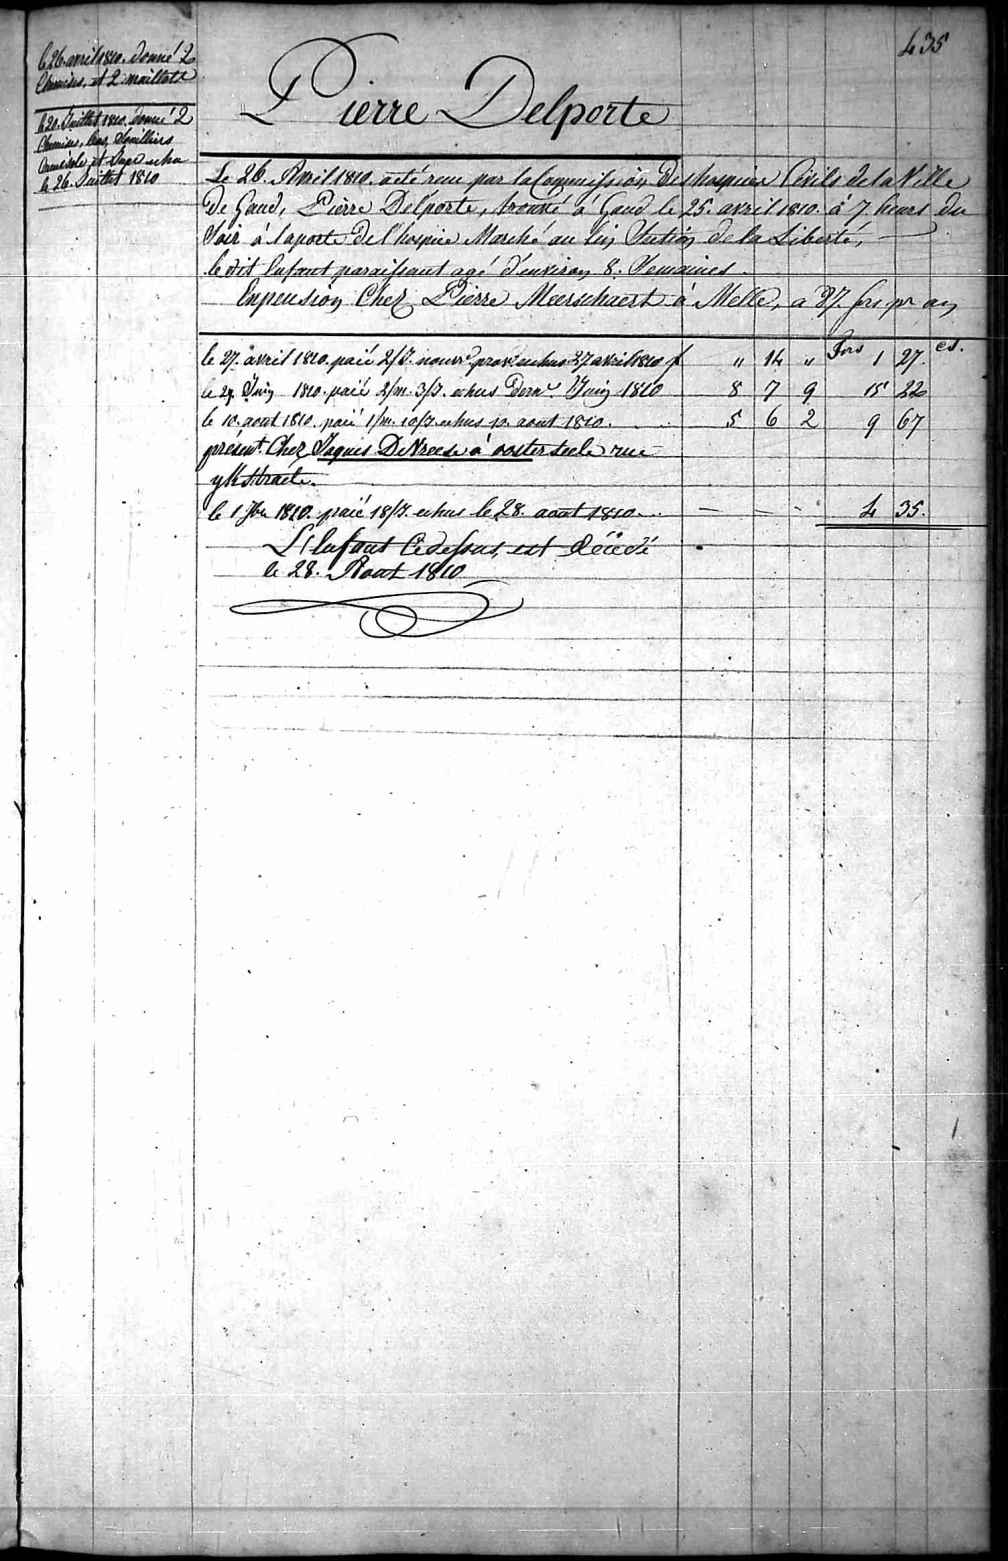 435
le 26. avril 1810. donné 2
Chemises, et 2 maillots
le 20. Juillet 1810. donné 2
Chemises,
Camisole et Jupe echu
le 26. Juillet 1810
Pierre Delporte
Le 26. Avril 1810. a été reçu par la Commission des hospices Civils de la Ville
De Gand, Pierre Delporte, trouvé à Gand le 25. avril 1810. à 7 heurs du
Soir à la porte de l'hospice Marché au Lin Section de la Liberté,
le dit Enfant paraissant agé d'environ 8. Semaines.
En pension Chez Pierre Meerschaert à Melle, a 87. frs pr an
Frs cs.
le 27. avril 1810. paié 2/J. nour echus 27 avril 1810 f " 14 " 1 27.
le 29. Juin 1810. paié 2/m. 3/J. echus Dern. Juin 1810 8 7 9 15 22
le 10. aout 1810. paié 1/m. 10/J. echus 10. aout 1810. 5 6 2 9 67
présent. Chez Jaques DeVreese à oosterseele rue
ykstraete.
le 1 7bre 1810. paié 18/J. echus le 28. aout 1810. - - - 4 35.
L'Enfant Cidessus est décédé
le 28. Aout 1810